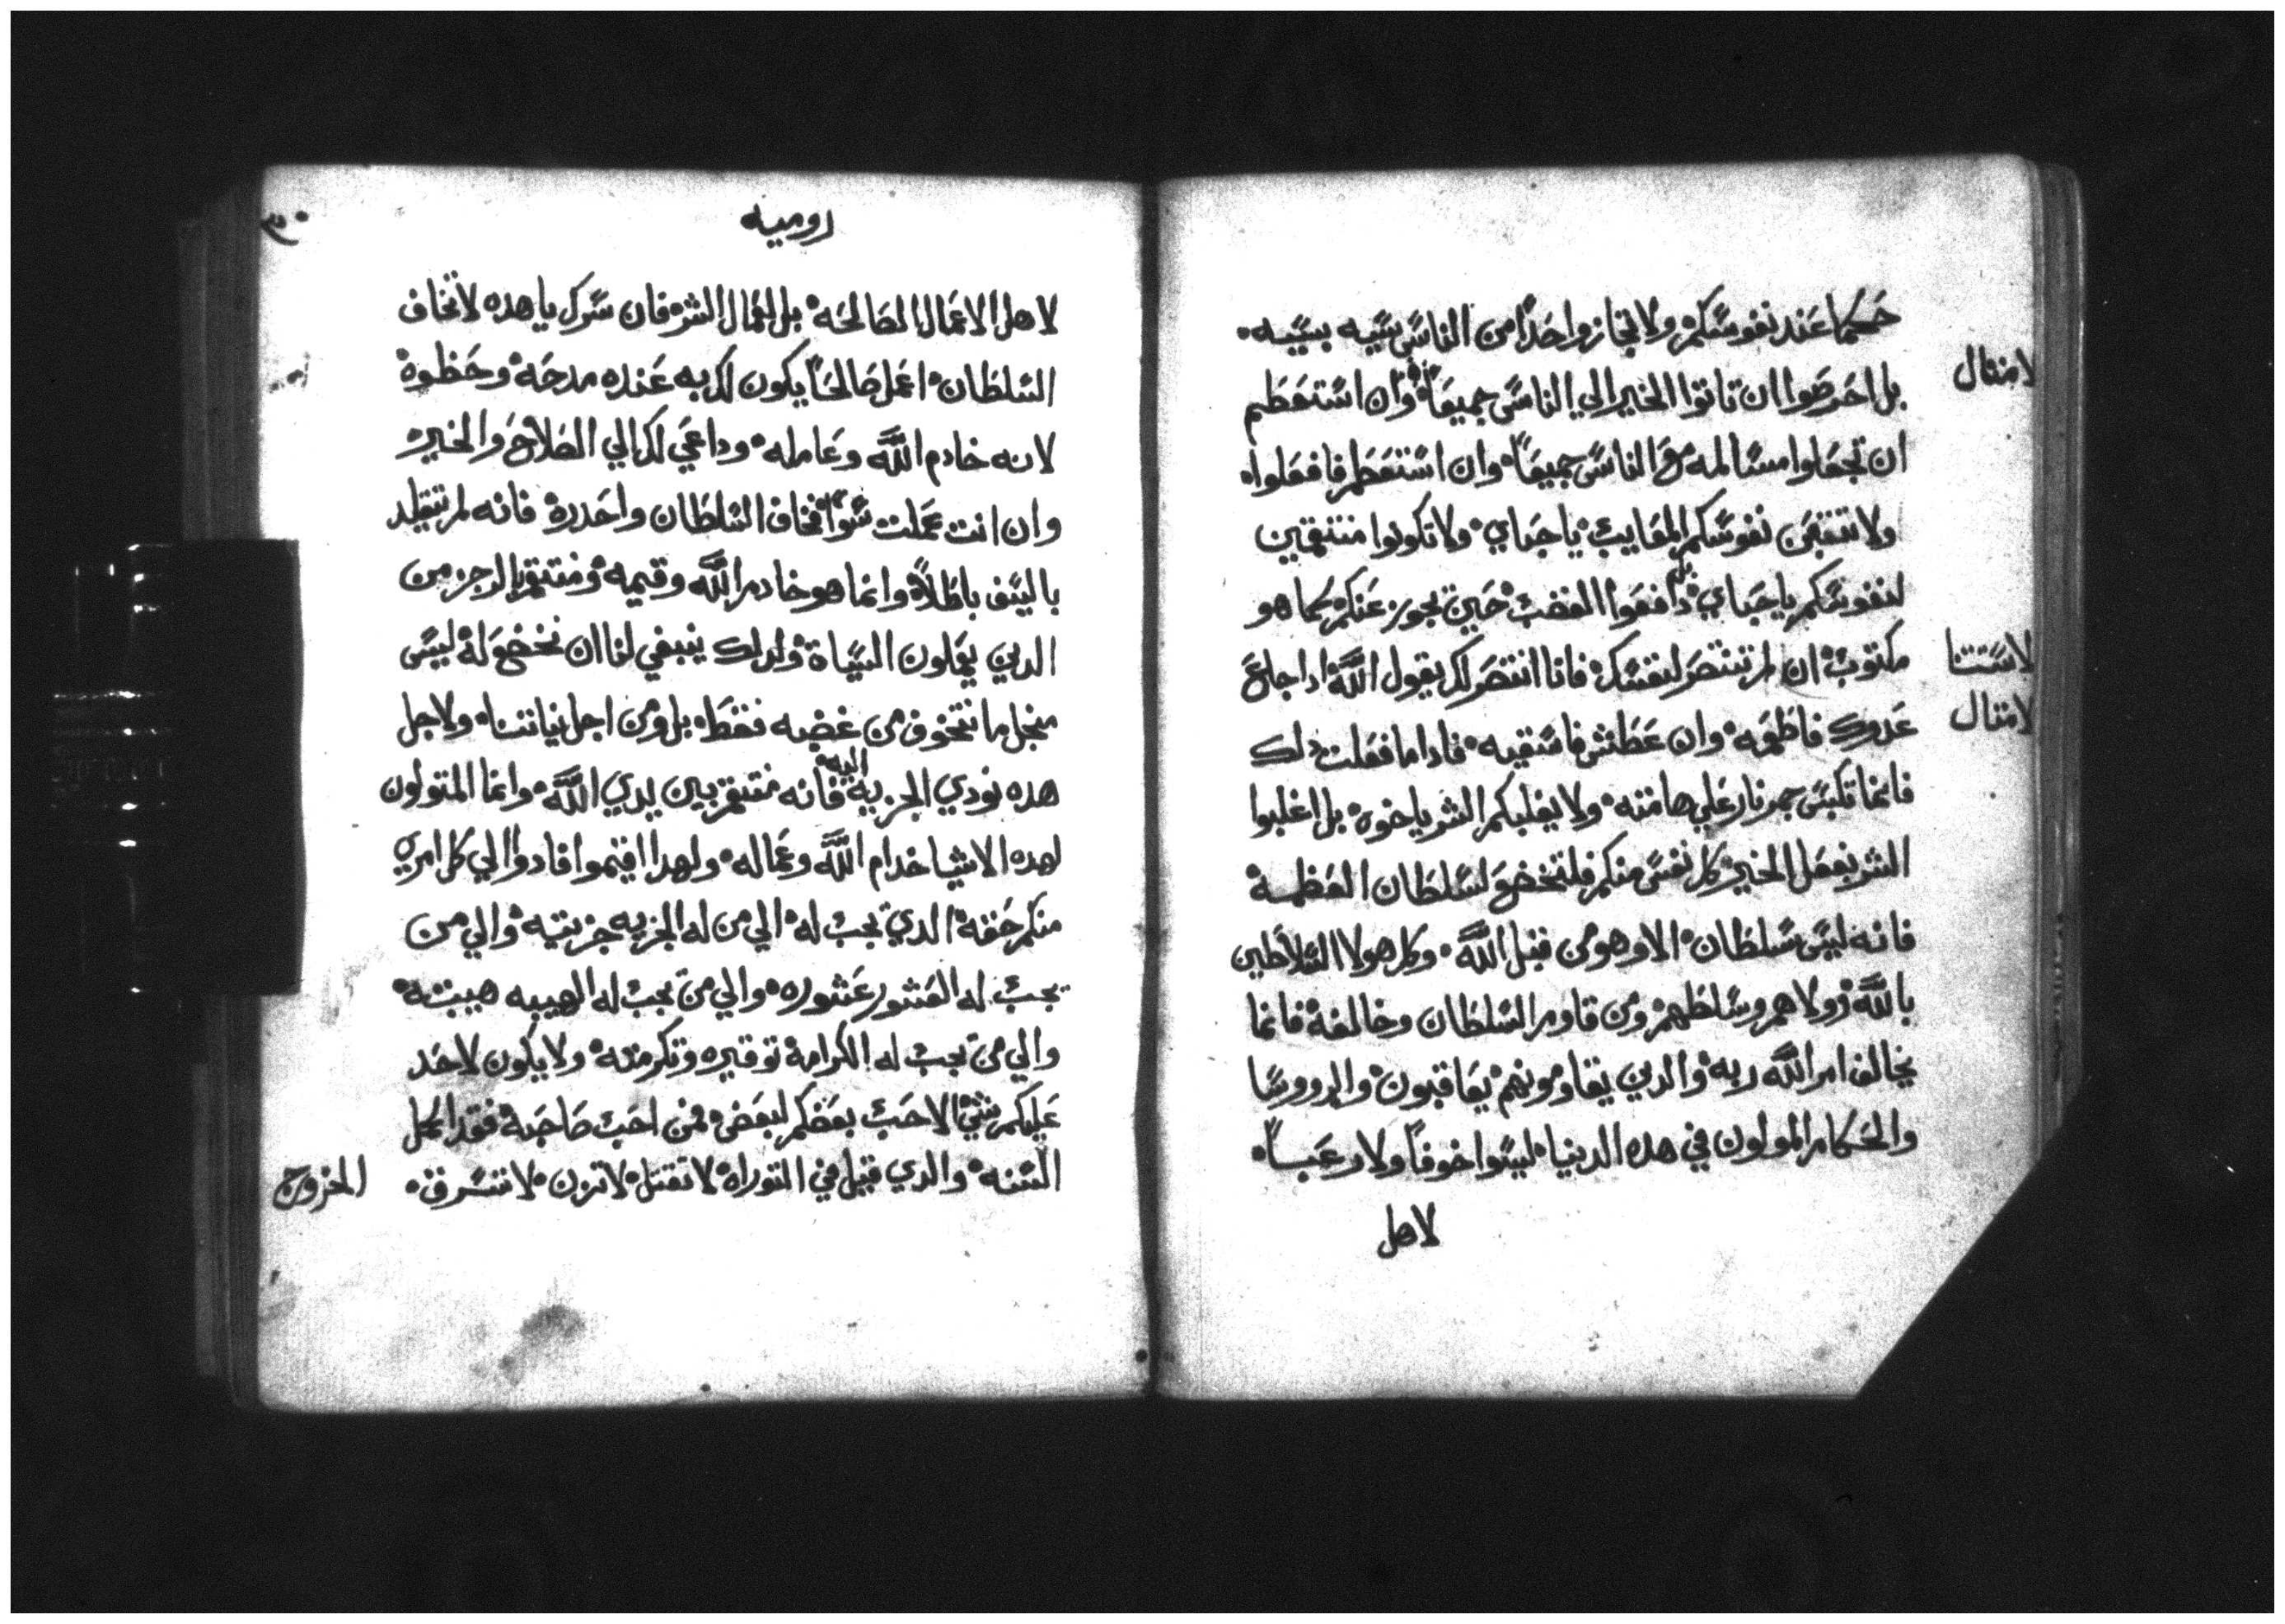 حكما عند نفوسكم ولا تجازوا احدا من الناس سيه بسيه
لامثال
بل احرصوا ان تاتوا الخير الي الناس جميعا وان استطعتم
ان تجعلوا مسالمه مع الناس جميعا وان استطعتم فافعلوا
ولا نفوسكم يا حباي ولا تكونوا منتقمين
لنفوسكم يا حباي دافعوا الغضب حين يجوز عنكم كما هو
لاستثنا
مكتوب ان لم تنتصر لنفسك فانا انتصر لك يقول الله ادا جاع
لامثال
عدوك فاطعمه وان عطش فاسقيه فادا ما فعلت دلك
فانما تكبس جمر نار علي هامته ولا يغلبكم الشر ياخوه بل اغلبوا
الشر بفعل الخير كل نفس منكم فلتخضع لسلطان العظمة
فانه ليس سلطان الا وهو من قبل الله وكل هولا السلاطين
بالله وولاهم وسلطهم ومن قاوم السلطان وخالفه فانما
يخالف امر الله ربه والدين يقاومونهم يعاقبون والرووسا
والحكام المولون في هده الدنيا ليسوا خوفا ولا رعبا
لاهل
روميه
٣٠
لاهل الاعمال الصالحه بل لعمال الشر فان سرك يا هده لا تخاف
السلطان اعمل صالحا يكون لك به عنده مدحه وحظوه
لانه خادم الله وعامله وداعي لك الي الصلاح والخير
وان انت عملت سوا فخاف السلطان واحدره فانه لم يتقلد
بالسيف باطلا وانما هو خادم الله وقيمه ومنتقم بالرجز من
الدين يعملون السيات ولدلك ينبغي لنا ان نخضع له ليس
منجل ما نتخوف من غضبه فقط بل ومن اجل نياتنا ولاجل
هده نودي الجزيه اليه فانه منتقم بين يدي الله وانما المتولون
لهده الاشيا خدام الله وعماله ولهدا اقيموا فادوا الي كل امري
منكم حقه الدي يجب له الي من له الجزيه جزيته والي من
يجب له العشور عشوره والي من يجب له الهيبه هيبته
والي من يجب له الكرامة توقيره وتكرمته ولا يكون لاحد
عليكم شي الا حب بعضكم لبعض فمن احب صاحبه فقد اكمل
السنه والدي قيل في التوراه لا تقتل لا تزن لا تسرق
الخروج